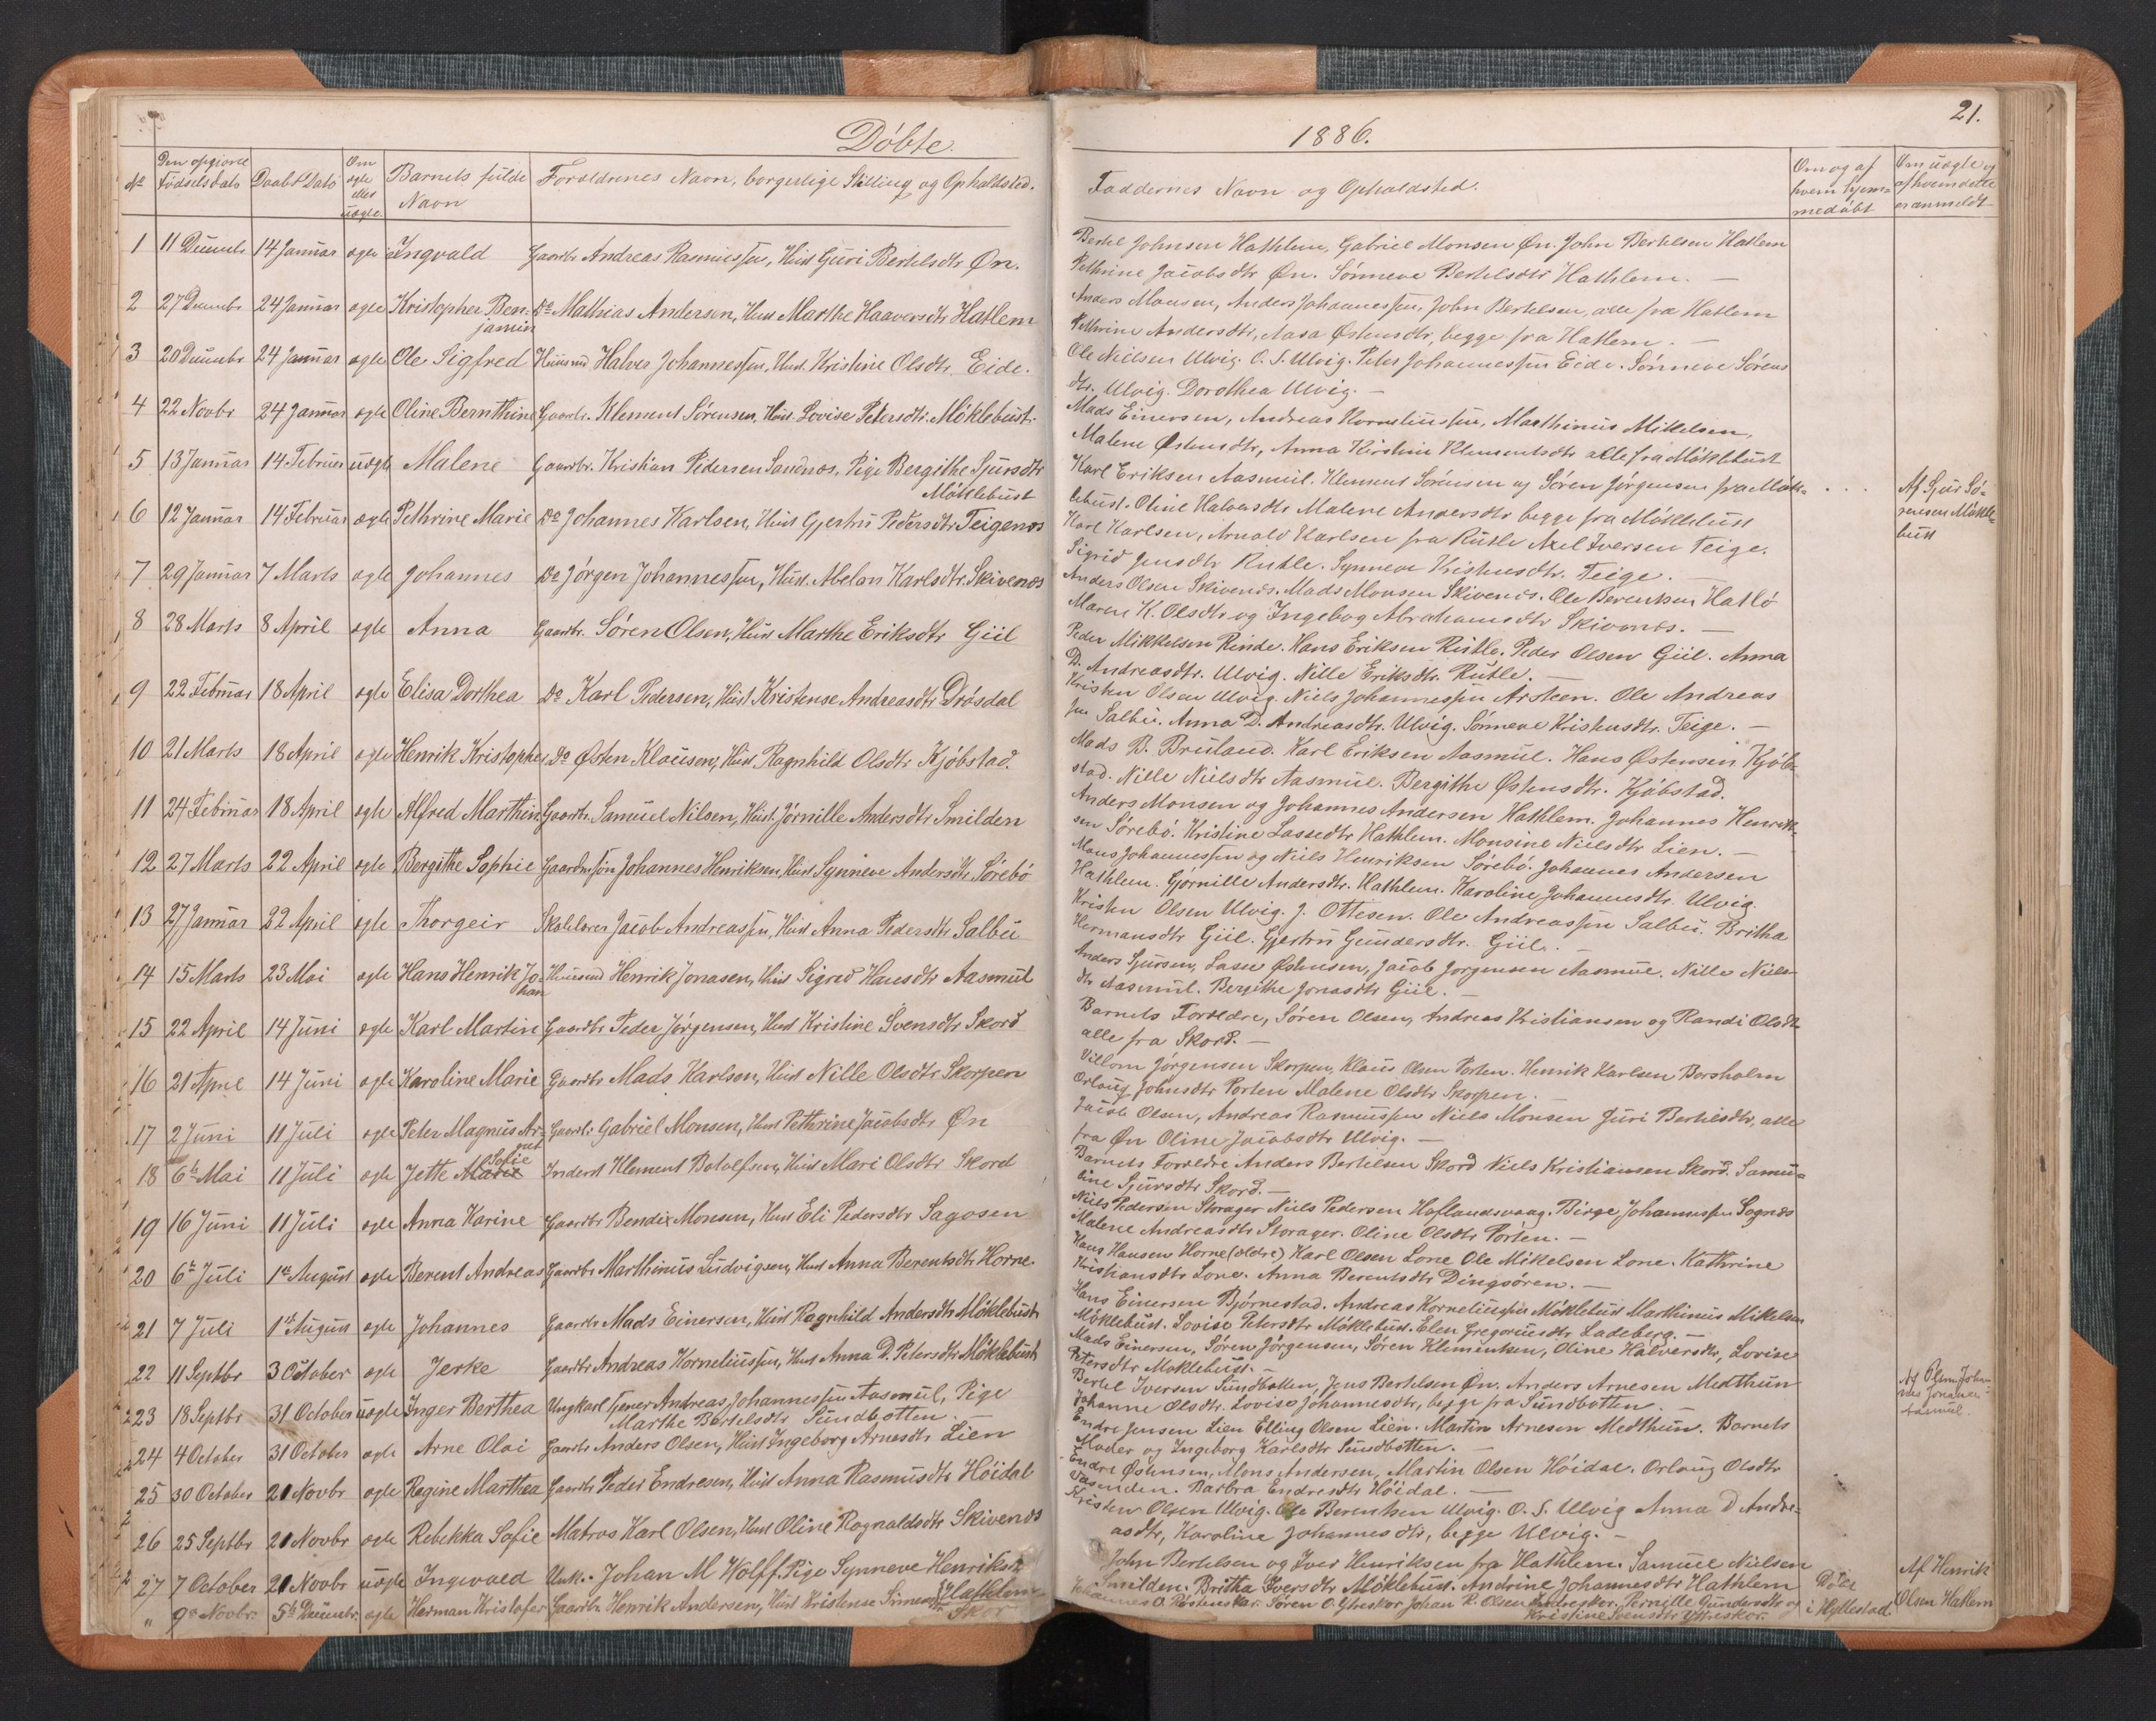 Döbte.
No
Den opgivne Födselsdato
Daabs Dato
Om ægte eller uægte.
Barnets fulde Navn
Forældrenes Navn, borgerlige Stilling og Opholdsted.
1 11 Decembr 14 Januar ægte Ingvald Gaardbr Andreas Rasmussen, Hust Guri Bertelsdtr Øn.
2 27 Decembr 24 Januar ægte Kristopher Ben= Do Mathias Andersen, Hust Marthe Haaversdtr Hatlem
jamin
3 20 Decembr 24 Januar ægte Ole Sigfred Huusmd Halver Johannessen, Hust. Kristine Olsdtr. Eide.
4 22 Novbr 24 Januar ægte Oline Bernthine Gaardbr. Klement Sörensen, Hust. Lovise Petersdtr. Möklebust.
5 13 Januar 14 Februar uægte Malene Gaardbr. Kristian Pedersen Sandnes, Pige Bergithe Sjursdtr
Möklebust
6 12 Januar 14 Februar ægte Pethrine Marie Do Johannes Karlsen, Hust Gjertru Pedersdtr Teigenæs
7 29 Januar 7 Marts ægte Johannes Do Jörgen Johannessen, Hust. Abelan Karlsdtr. Skivenæs
8 28 Marts 8 April ægte Anna Gaardbr. Sören Olsen, Hust Marthe Eriksdtr Giil
9 22 Februar 18 April ægte Elisa Dorthea Do Karl Pedersen, Hust Kristense Andreasdtr Drösdal
10 21 Marts 18 April ægte Henrik Kristopher Do Østen Klausen, Hust Ragnhild Olsdtr Kjöbstad.
11 24 Februar 18 April ægte Alfred Marthin Gaardbr. Samuel Nilsen, Hust. Jörnille Andersdtr Smilden
12 27 Marts 22 April ægte Bergithe Sophie Gaardmsön Johannes Henriksen, Hust Synneve Andersdtr Sörebö
13 27 Januar 22 April ægte Thorgeir Skolelærer Jacob Andreassen, Hust Anna Pedersdtr Salbu
14 15 Marts 23 Mai ægte Hans Henrik Jo= Huusmd Henrik Jonasen, Hust Sigred Hansdtr Aasmul
han
15 22 April 14 Juni ægte Karl Martin Gaardbr Peder Jörgensen, Hust Kristine Svensdtr Skord
16 21 April 14 Juni ægte Karoline Marie Gaardbr Mads Karlsen, Hust Nille Olsdtr Skorpen
17 2 Juni 11 Juli ægte Peter Magnus Ar= Gaardbr Gabriel Monsen, Hust Pethrine Jacobsdtr Øn
Sofie
18 6te Mai 11 Juli ægte Jette Marie Inderst Klement Botolfsen, Hust Mari Olsdtr Skord
19 16 Juni 11 Juli ægte Anna Karine Gaardbr Bendix Monsen, Hust Eli Pedersdtr Sagosen
20 6te Juli 1ste August ægte Berent Andreas Gaardbr Marthinus Ludvigsen, Hust Anna Berentsdtr Horne.
21 7 Juli 1ste August ægte Johannes Gaardbr Mads Einersen, Hust Ragnhild Andersdtr Möklebust
22 11 Septbr 3 October ægte Jerke Gaardbr Andreas Korneliussen, Hust Anna D. Petersdtr Möklebust
23 18 Septbr 31 October uægte Inger Berthea Ungkarl Tjener Andreas Johannessen Aasmul, Pige
Marthe Bertelsdtr Sundbotten.
24 4 October 31 October ægte Arne Olai Gaardbr Anders Olsen, Hust Ingeborg Arnesdtr Lien
25 30 October 21 Novbr ægte Regine Marthea Gaardbr Peder Endresen, Hust Anna Rasmusdtr Höidal
26 25 Septbr 21 Novbr ægte Rebekka Sofie Matros Karl Olsen, Hust Oline Rognaldsdtr Skivenes
27 7 October 21 Novbr uægte Ingvald Unk. Johan M Wolff. Pige Synneve Henriksdtr
Hathlem
" 9de Novbr. 5te Decembr. ægte Herman Kristofer Gaardbr. Henrik Andersen, Hust Kristense
Skor
1886.
21.
Faddernes Navn og Opholdsted.
Om og af hvem hjem= medöbt
Om uægte og af hvem dette er anmeldt
Bertel Johnsen Hathlem, Gabriel Monsen Øn. John Bertelsen Hatlem
Pethrine Jacobsdtr Øn. Sönneve Bertelsdtr Hathlem.
Anders Monsen, Anders Johannessen, John Bertelsen, alle fra Hatlem
Pethrine Andersdtr, Aasa Østensdtr, begge fra Hatlem.
Ole Nielsen Ulvig. O. S. Ulvig. Peter Johannessen Eide. Sönneve Sörens
dtr. Ulvig. Dorothea Ulvig.
Mads Einersen, Andreas Korneliussen, Marthinus Mikkelsen,
Malene Østensdtr, Anna Kirstine Klementsdtr alle fra Möklebust
Karl Eriksen Aasmul. Klement Sörensen og Sören Jörgensen fra Mökl=
ebust. Oline Halversdtr Malene Andersdtr begge fra Möklebust
Af Sjur Sö=
rensen Mökle=
bust
Karl Karlsen, Arnold Karlsen fra Rutle Axel Iversen Teige.
Sigrid Jensdtr Rutle. Synneve Kristensdtr. Teige.
Anders Olsen Skivenes. Mads Monsen Skivenes. Ole Berentsen Hatlö
Maren K. Olsdtr og Ingebog Abrahamsdtr Skivenes.
Peder Mikkelsen Rinde. Hans Eriksen Rutle. Peder Olsen Giil. Anna
D. Andreasdtr. Ulvig. Nille Eriksdtr. Rutle.
Kristen Olsen Ulvig. Niels Johannessen Arsteen. Ole Andreas
sen Salbu. Anna D. Andreasdtr. Ulvig. Sönneve Kristensdtr. Teige.
Mads B. Bruland. Karl Eriksen Aasmul. Hans Østensen Kjöb=
stad. Nille Nielsdtr Aasmul. Bergithe Østensdtr. Kjöbstad.
Anders Monsen og Johannes Andersen Hathlem. Johannes Henrik=
sen Sörebö. Kristine Lassedtr Hathlem. Monsine Nielsdtr Lien.
Mons Johannessen og Niels Henriksen Sörebö. Johannes Andersen
Hathlem. Gjörnille Andersdtr. Hathlem. Karoline Johannesdtr. Ulvig.
Kristen Olsen Ulvig. J. Ottesen. Ole Andreassen Salbu. Britha
Hermansdtr Giil. Gjertru Gundersdtr. Giil.
Anders Sjursen, Lasse Østensen, Jacob Jorgensen Aasmul. Nille Niels
dtr Aasmul. Bergithe Jonasdtr Giil.
Barnets Forældre, Sören Olsen, Andreas Kristiansen og Randi Olsdtr
alle fra Skord.
Villom Jörgensen Skorpen, Klaus Olsen Porten. Henrik Karlsen Borsholm
Orlaug Johnsdtr Porten Malene Olsdtr Skorpen.
Jacob Olsen, Andreas Rasmussen Niels Monsen Juri Bertelsdtr, alle
fra Øn Oline Jacobsdtr Ulvig.
Barnets Forældre Anders Bertelsen Skord Niels Kristiansen Skord. Samu=
line Sjursdtr Skord.
Niels Pedersen Storager Niels Pedersen Haflandsvaag. Birge Johannessen Sognæs
Malene Andreasdtr Storager. Oline Olsdtr Porten.
Hans Hansen Horne (ældre) Karl Olsen Lone Ole Mikelsen Lone. Kathrine
Kristiansdtr Lone. Anna Berentsdtr Dingsören.
Hans Einersen Björnestad. Andreas Korneliussen Möklebust Marthinus Mikelsen
Möklebust. Lovise Petersdtr Möklebust. Elen Gregoriusdtr Ladeberg.
Mads Einersen, Sören Jörgensen, Sören Klementsen, Oline Halversdtr, Lovise
Petersdtr Moklebust.
Bertel Iversen Sundbotten, Jens Bertelsen Øn. Anders Arnesen Medthun
Johanne Olsdtr. Lovise Johannesdtr, begge fra Sundbotten.
Aasmul.
Endre Jensen Lien Elling Olsen Lien. Martin Arnesen Medthun. Barnets
Moder og Ingeborg Karlsdtr Sundbotten.
Endre Østensen, Mons Andersen, Martin Olsen Höidal. Orlaug Olsdtr
Barbra Endresdtr Höidal.
Kristen Olsen Ulvig. Ole Berentsen Ulvig. O. S. Ulvig Anna D Andre=
asdtr, Karoline Johannesdtr, begge Ulvig.
John Bertelsen og Iver Henriksen fra Hathlem. Samuel Nielsen
Smilden. Britha Iversdtr Möklebust. Andrine Johannesdtr Hathlem
Af Henrik
Olsen Hatlem
Sören O. Ytreskor Johan R. Olsen Pernille Gundersdtr og
Kristine Svensdtr Ytreskor.
Döbt
i Hyllestad.